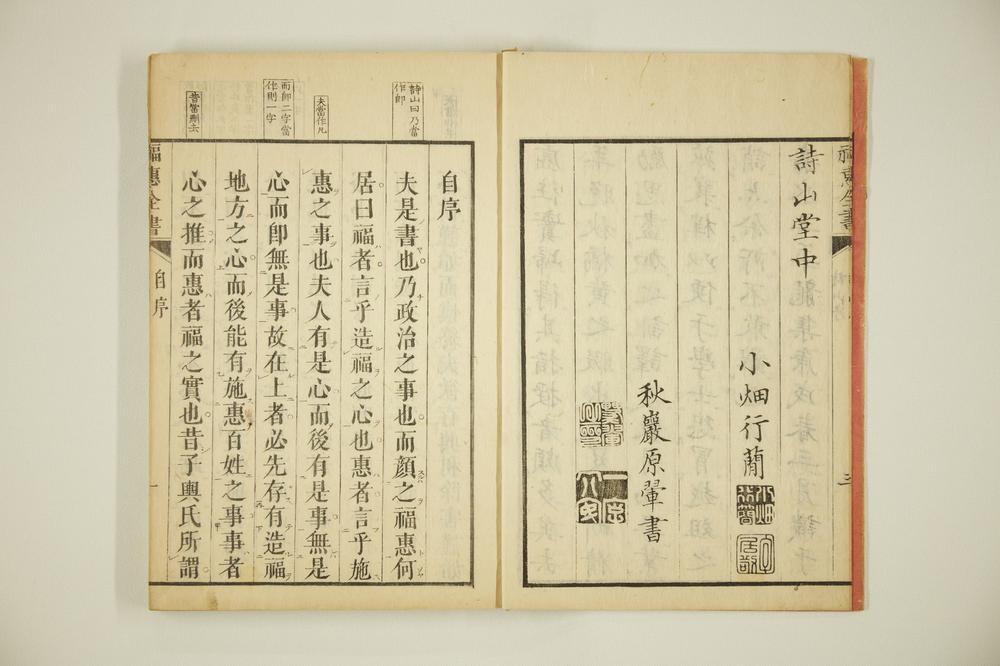 詩山堂中
小畑行蕳
秋巖原翬書
福惠全書
三
詩山曰乃當
作即
夫當作凡
而即二字當
作則一字
昔當刪去
自序
夫是書也乃政治之事也而顏之福惠何
居曰福者言乎造福之心也惠者言乎施
惠之事也夫人有是心而後有是事無是
心而卽無是事故在上者必先存有造福
地方之心而後能有施惠百姓之事事者
心之推而惠者福之實也昔子輿氏所謂
福惠全書
自序
一